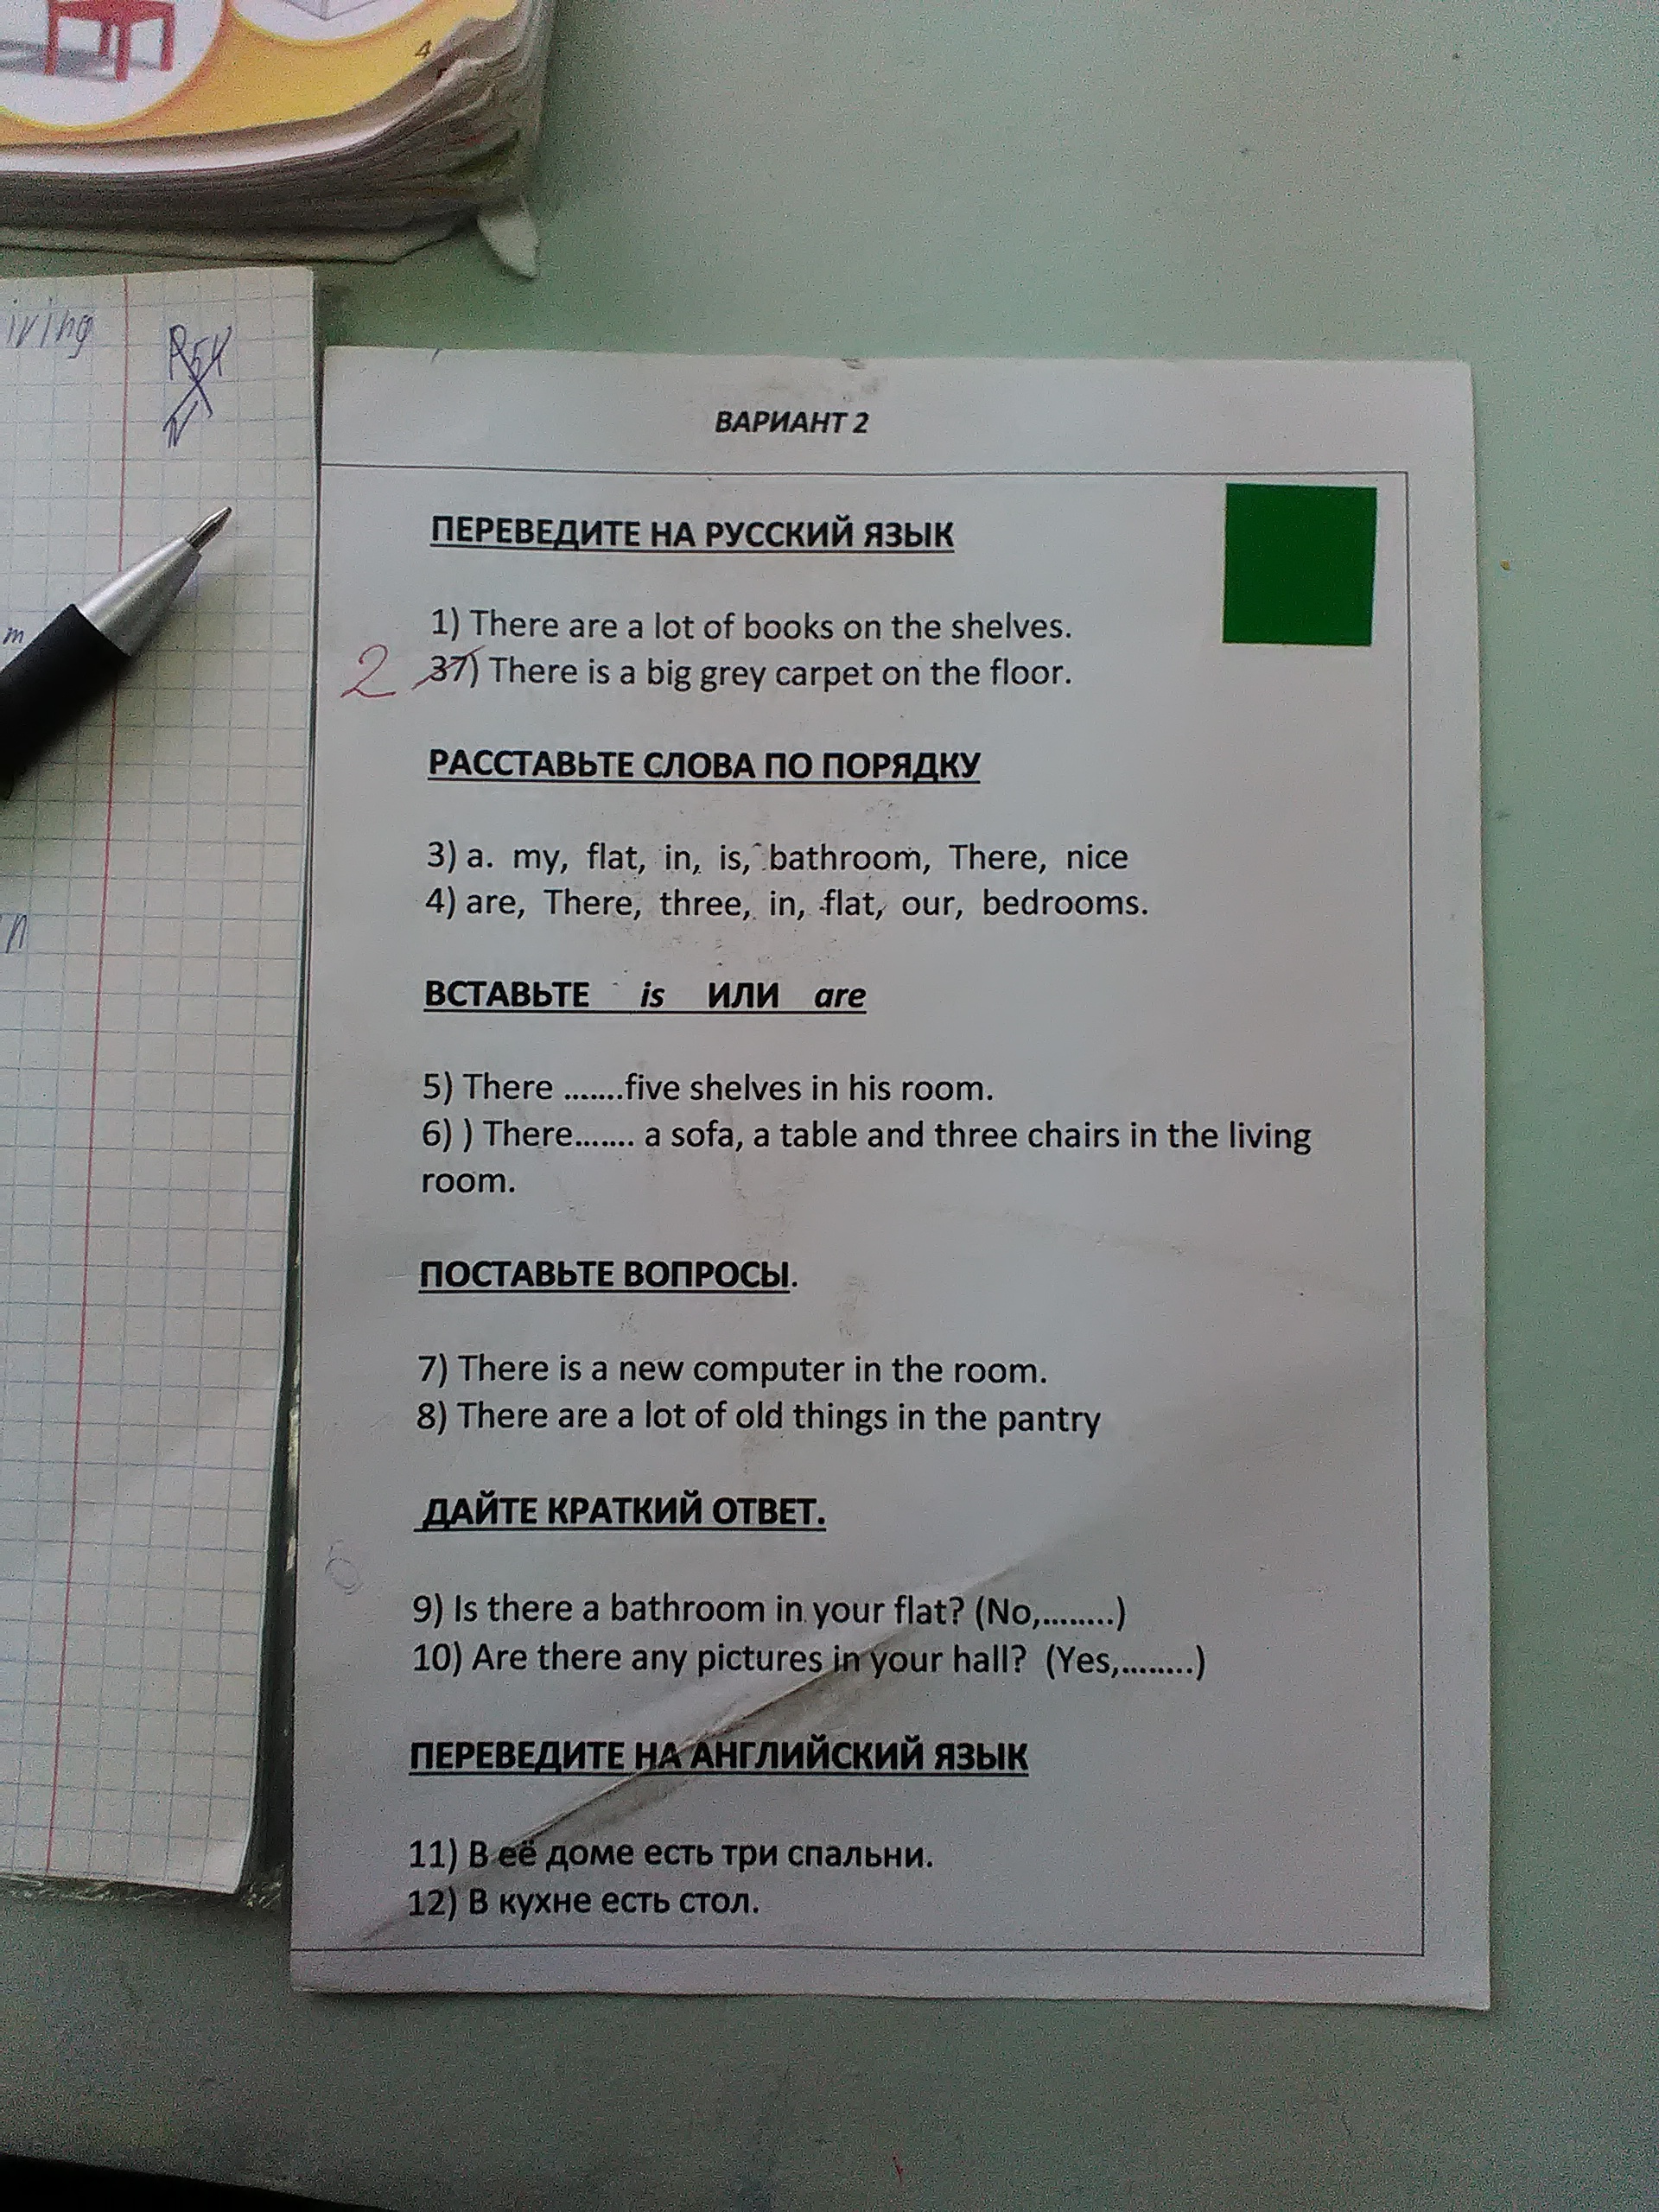 4
iving
m
n
ВАРИАНТ 2
ПЕРЕВЕДИТЕ НА РУССКИЙ ЯЗЫК
1) There are a lot of books on the shelves.
2 37) There is a big grey carpet on the floor.
РАССТАВЬТЕ СЛОВА ПО ПОРЯДКУ
3) a. my, flat, in, is, bathroom, There, nice
4) are, There, three, in, flat, our, bedrooms.
ВСТАВЬТЕ is ИЛИ are
5) There .......five shelves in his room.
6) ) There....... a sofa, a table and three chairs in the living
room.
ПОСТАВЬТЕ ВОПРОСЫ.
7) There is a new computer in the room.
8) There are a lot of old things in the pantry
ДАЙТЕ КРАТКИЙ ОТВЕТ.
9) Is there a bathroom in your flat? (No,.........)
10) Are there any pictures in your hall? (Yes,.........)
ПЕРЕВЕДИТЕ НА АНГЛИЙСКИЙ ЯЗЫК
11) В её доме есть три спальни.
12) В кухне есть стол.